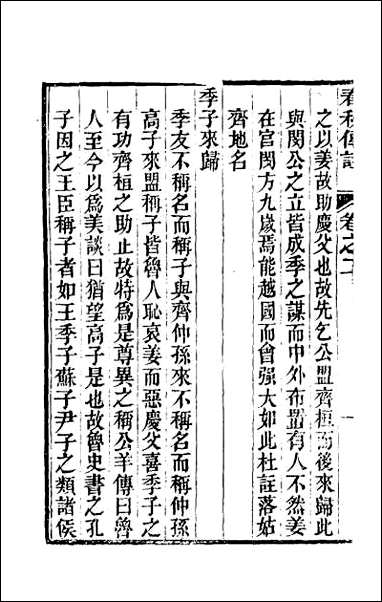 春秋傳註
卷之二
之以姜故助慶父也故先乞公盟齊桓而後來歸此
與閔公之立皆成季之謀而中外布置有人不然姜
在宫閔方九歲焉能越國而會强大如此杜註落姑
齊地名
季子來歸
季友不稱名而稱子與齊仲孫來不稱名而稱仲孫
高子來盟稱子皆魯人恥哀姜而惡慶父喜季子之
有功齊桓之助止故特爲是尊異之稱公羊傳曰魯
人至今以爲美談曰猶望高子是也故魯史書之孔
子因之王臣稱子者如王季子蘇子尹子之類諸侯